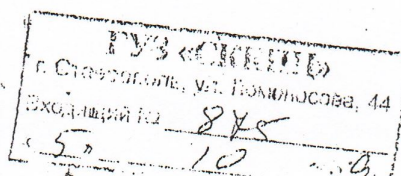 ГУЗ «СККПБ»
г. Ставрополь, ул. Ломоносова, 44
Входящий № 875
« 5 » 10